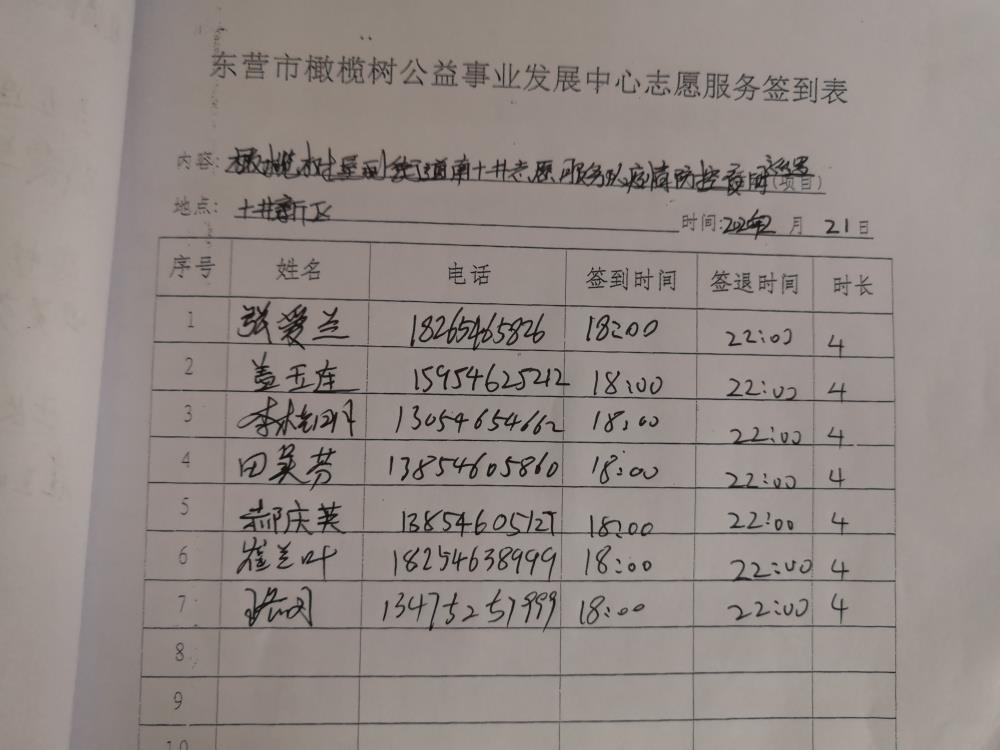 东营市橄榄树公益事业发展中心志愿服务签到表
内容: 橄榄树垦利街道南十井志愿服务队疫情防控(项目)
地点: 十井新区 时间: 月 21日
序号 姓名 电话 签到时间 签退时间 时长
1 张爱兰 18265465826 18:00 22:00 4
2 盖玉连 15954625212 18:00 22:00 4
3 李桂明 13054654662 18:00 22:00 4
4 田英芳 13854605860 18:00 22:00 4
5 郝庆英 1385460512 18:00 22:00 4
6 崔兰叶 18254638999 18:00 22:00 4
7 13475257999 18:00 22:00 4
8
9
10